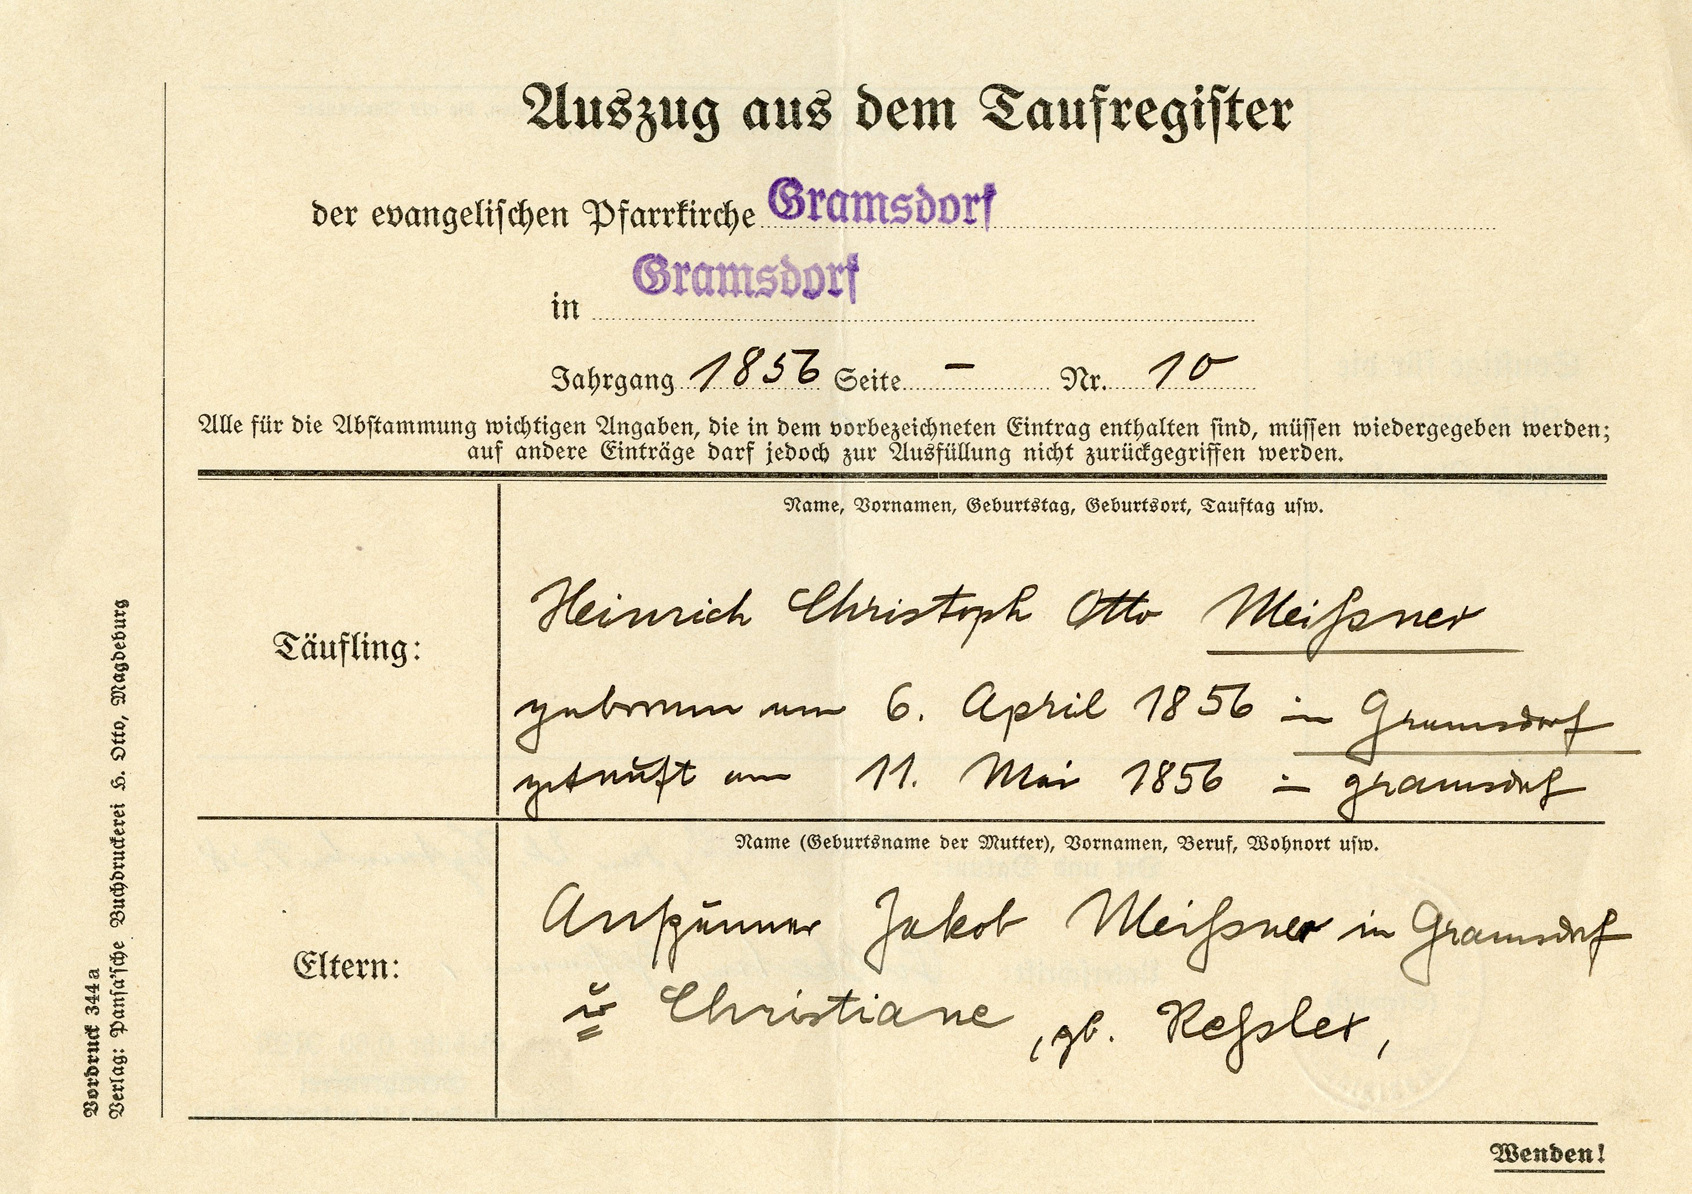 Auszug aus dem Taufregister
der evangelischen Pfarrkirche Gramsdorf
in Gramsdorf
Jahrgang 1856 Seite – Nr. 10
Alle für die Abstammung wichtigen Angaben, die in dem vorbezeichneten Eintrag enthalten sind, müssen wiedergegeben werden;
auf andere Einträge darf jedoch zur Ausfüllung nicht zurückgegriffen werden.
Name, Vornamen, Geburtstag, Geburtsort, Tauftag usw.
Täufling:
Heinrich Christoph Otto Meißner
geboren am 6. April 1856 in Gramsdorf
getauft am 11. Mai 1856 in Gramsdorf
Name (Geburtsname der Mutter), Vornamen, Beruf, Wohnort usw.
Eltern:
Anspänner Jakob Meißner in Gramsdorf
u. Christiane, gb. Keßler,
Wenden!
Vordruck 344a
Verlag: Pansa'sche Buchdruckerei H. Otto, Magdeburg